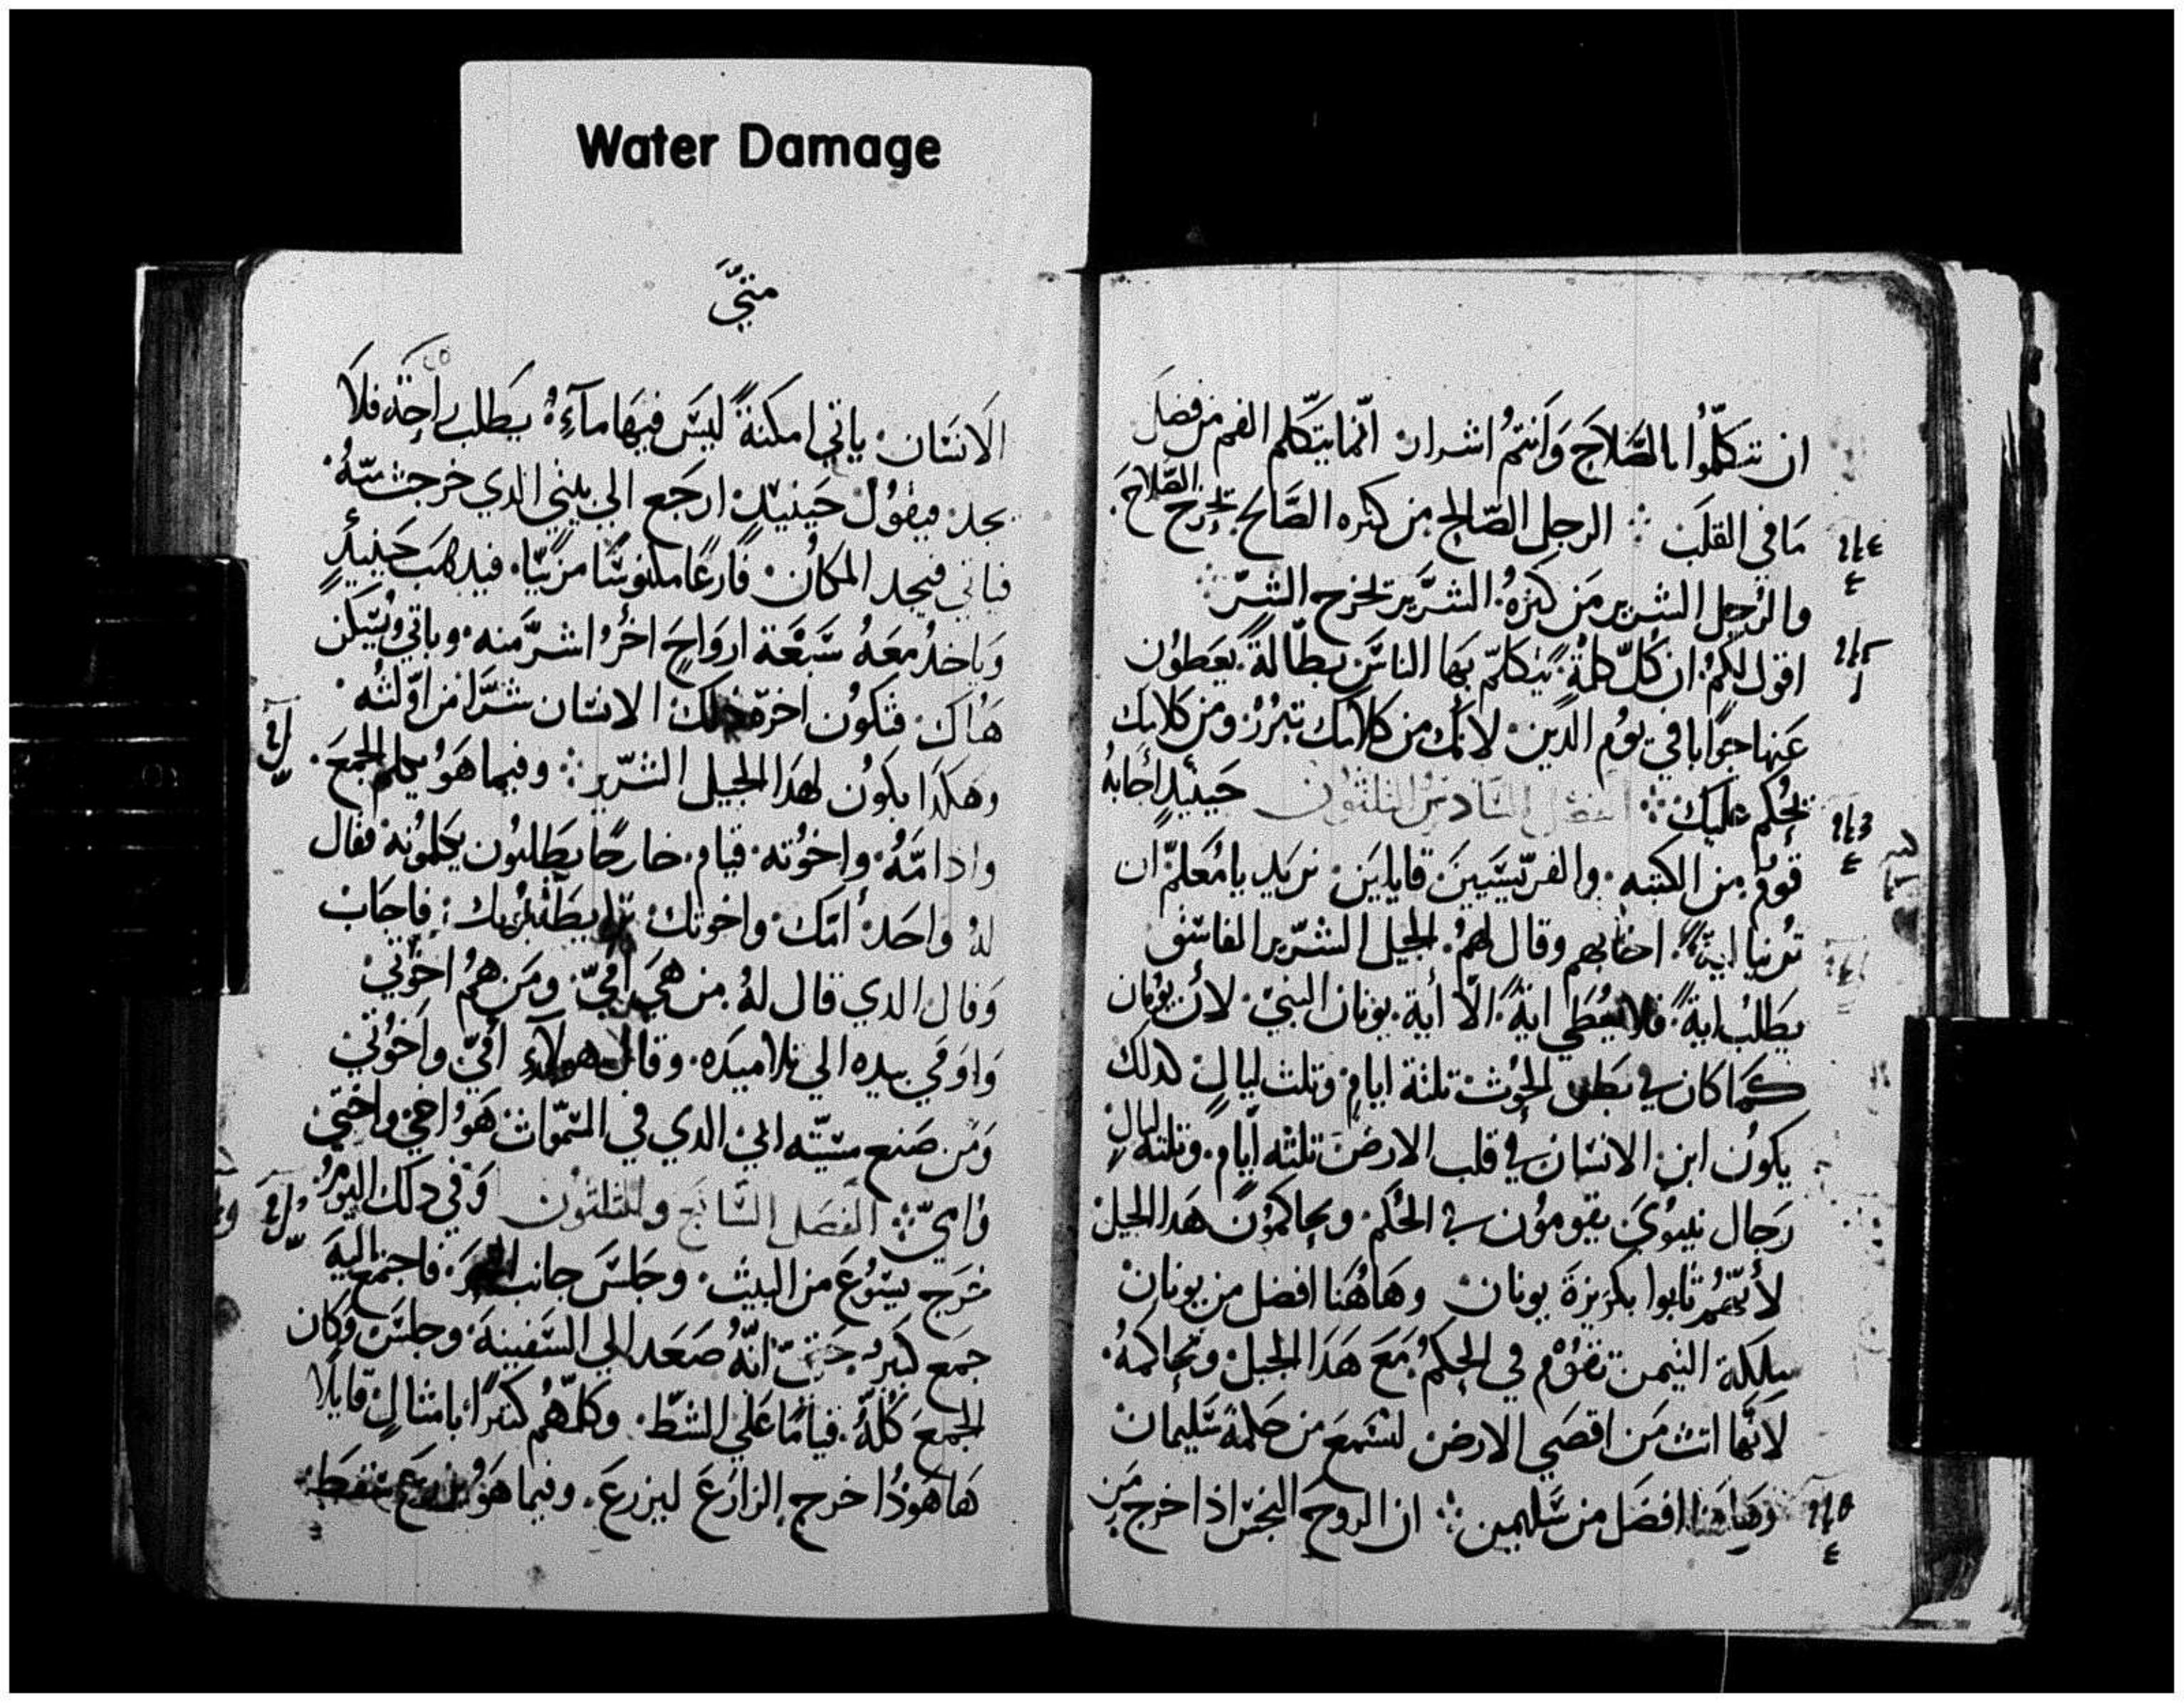 Water Damage
ان تتكلّموا بالصَّلاح وَانتمُ اشرار. انّما يتكّلم الفم من فضل
مَا في القلبَ ❊ الرجل الصّالح من كنزه الصَّالح يخرج الصّلاح.
والرُجل الشرير من كنزهُ الشرَّير يخرج الشرّ ❊
اقول لكمُ ان كُلّ كلمةٍ يتكلمّ بهَا الناسَ بطّالةً. يعَطوُن
عَنها جوَابا في يوُم الدين. لانك من كلامك تبرُرْ ومن كلامك
يُحكم عليك ❊ الفصل السّادس الثلثون حينيدٍ أجابهُ
قومٌ من الكتبه. والفرّيسَيينَ قايلين. نريد يا مُعَلمّ ان
ترُنيا ايةً. اجابهم وقال لهمُ. الجيل الشرّير الفاسَق
يطَلبُ ايةً. فلا يعُطَي ايةً. الّا أية يونان النبيْ. لأن يوُنان
كمَا كان في بطن الحوُث تلتة ايامٍ وتلث ليالٍ كدلك
يكوُن ابن الانسَان في قلب الارضَ تلتٰه ايّام. وتلته ليالٍ
رَجال نينوُيَ يقوموُن في الحُكم. ويحاكموُن هَدا الجيل
لأنهّمُ تابوا بكرَيزةَ يونان. وهَاهُنَا افضل من يونان
ملكة التيمن تقوُم في الحكمُ. معَ هَدَا الجيل وتحاكمهُ.
لانهَّا اتت من اقصَي الارض لتسَمعَ من حكمة سَليمان
وهَاهنا افضَل من سَليمن ❊ ان الروحَ النجسَ اذا خرج من
متيَّ
الَانسَان. ياتي امكنةً ليسَ فيهَا مآءٍ. يطلب راحةً فلَا
يجد. فيقوُل حَينيدٍ. ارجَع الي بيتي الدي خرجت منهُ.
فياتي فيجد المكانُ. فارغًا مكنوسًا مزيّنًا. فيدهَب حَينيدٍ
وَياخدُ معَهُ سَبْعَة ارواحَ اخرُ اشرَّ منه. وياتي ويُسَكن
هنُاك. فتكوُن اخرَة دلك الانسَان شرَّا من اوّلته.
وهَكدَا يكَوُن لهدَا الجيل الشرّير ❊ وفيما هَوُ يكلم الجمعَ.
واذا امّهُ. واخوُته. قيام. خارجًا يطَلبوُن يكلموُنهُ فقال
لهُ واحَد. أمّك. واخوتك. يطَلبوُنك. فاجَابْ
وَقال الدي قال لهُ. من هيَ امّيّ. ومَن همُ اخوَتيْ
وَاومَي بيده الي تلاميدَه. وقال هولَاءِ أميّ واخَوُتيْ
وَمن صَنع مسَيّته ابيْ الدي في السّمَوات. هَوُ اخيْ واختيْ
وُاميّ ❊ الفَصَل السَّابَع والثلثوُن وَفي دلك اليومُ
خرَج يسَوُعَ من البيت. وجَلسَ جانب البحَر. فاجتمَع اليهَ
جمَع كبيرُ. حَتيّ انّهُ صَعَد الي السَفينهَ. وجلسَ. وكَان
الجمعَ كُلّهُ. قيامًا عَلي الشطّ. وكلمّهمُ كثيرًا بامثالٍ قايلًا
هَاهَوَدُا خرج الزارَعَ ليزرعَ. وفيما هَوُ يزرعَ سَقطَ